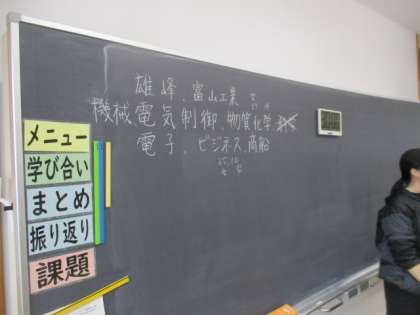 雄峰、富山工業
機械電気制御、物質化学
電子、ビジネス、商船
メニュー
学び合い
まとめ
振り返り
課題